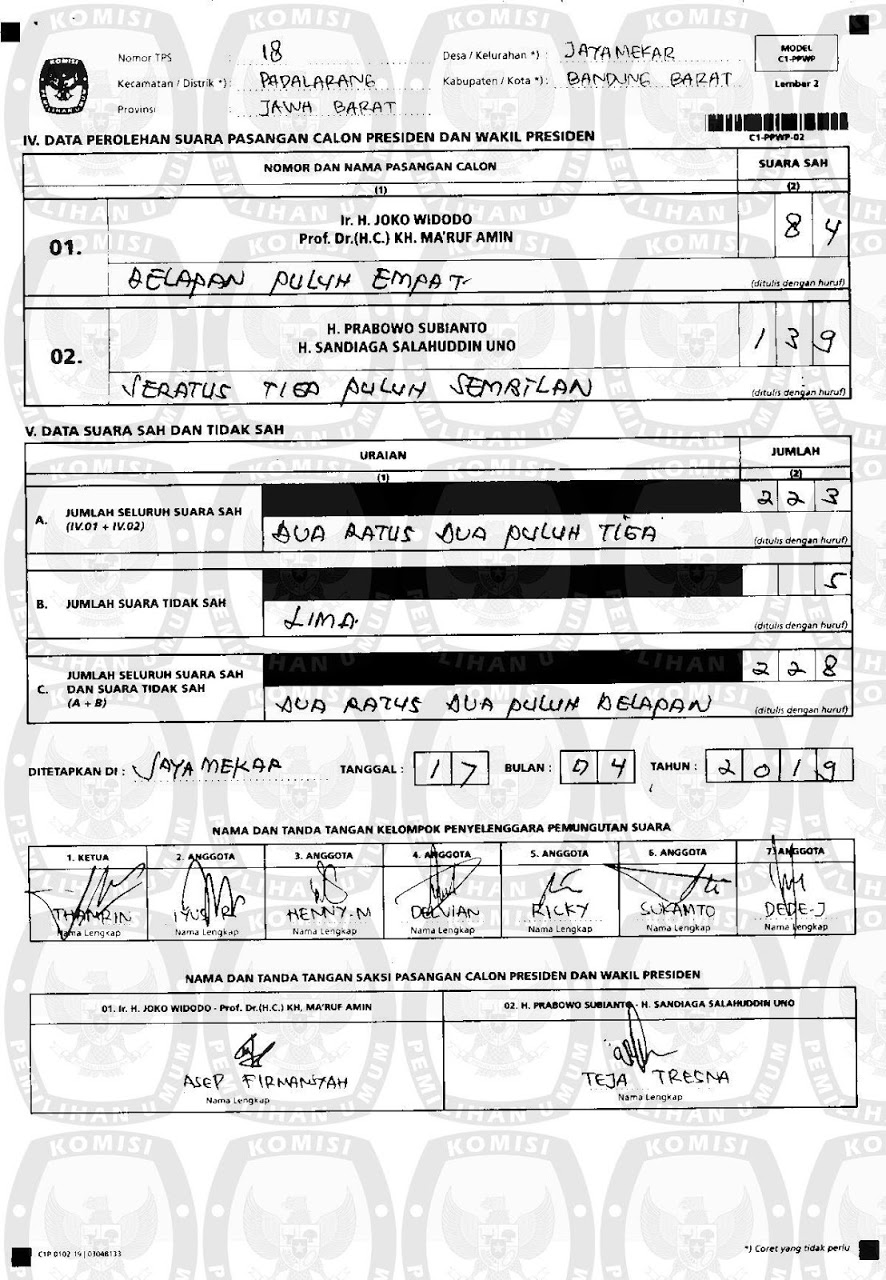 Nomor TPS : 18
Desa / Kelurahan *) : JAYAMEKAR
MODEL C1-PPWP
Kecamatan / Distrik *) : PADALARANG
Kabupaten / Kota *) : BANDUNG BARAT
Lembar 2
Provinsi : JAWA BARAT
C1-PPWP-02
IV. DATA PEROLEHAN SUARA PASANGAN CALON PRESIDEN DAN WAKIL PRESIDEN
NOMOR DAN NAMA PASANGAN CALON SUARA SAH
(1) (2)
01. Ir. H. JOKO WIDODO
Prof. Dr.(H.C.) KH. MA'RUF AMIN 8 4
DELAPAN PULUH EMPAT (ditulis dengan huruf)
02. H. PRABOWO SUBIANTO
H. SANDIAGA SALAHUDDIN UNO 1 3 9
SERATUS TIGA PULUH SEMBILAN (ditulis dengan huruf)
V. DATA SUARA SAH DAN TIDAK SAH
URAIAN JUMLAH
(1) (2)
A. JUMLAH SELURUH SUARA SAH
(IV.01 + IV.02) 2 2 3
DUA RATUS DUA PULUH TIGA (ditulis dengan huruf)
B. JUMLAH SUARA TIDAK SAH 5
LIMA (ditulis dengan huruf)
C. JUMLAH SELURUH SUARA SAH
DAN SUARA TIDAK SAH
(A + B) 2 2 8
DUA RATUS DUA PULUH DELAPAN (ditulis dengan huruf)
DITETAPKAN DI : JAYA MEKAR TANGGAL : 1 7 BULAN : 0 4 TAHUN : 2 0 1 9
NAMA DAN TANDA TANGAN KELOMPOK PENYELENGGARA PEMUNGUTAN SUARA
1. KETUA 2. ANGGOTA 3. ANGGOTA 4. ANGGOTA 5. ANGGOTA 6. ANGGOTA 7. ANGGOTA
THAMRIN IYUS R HENNY.M DELVIAN RICKY SUKAMTO DEDE-J
Nama Lengkap Nama Lengkap Nama Lengkap Nama Lengkap Nama Lengkap Nama Lengkap Nama Lengkap
NAMA DAN TANDA TANGAN SAKSI PASANGAN CALON PRESIDEN DAN WAKIL PRESIDEN
01. Ir. H. JOKO WIDODO - Prof. Dr.(H.C.) KH, MA'RUF AMIN 02. H. PRABOWO SUBIANTO - H. SANDIAGA SALAHUDDIN UNO
ASEP FIRMANSYAH TEJA TRESNA
Nama Lengkap Nama Lengkap
C1P 0102 19 | 03048133
*) Coret yang tidak perlu